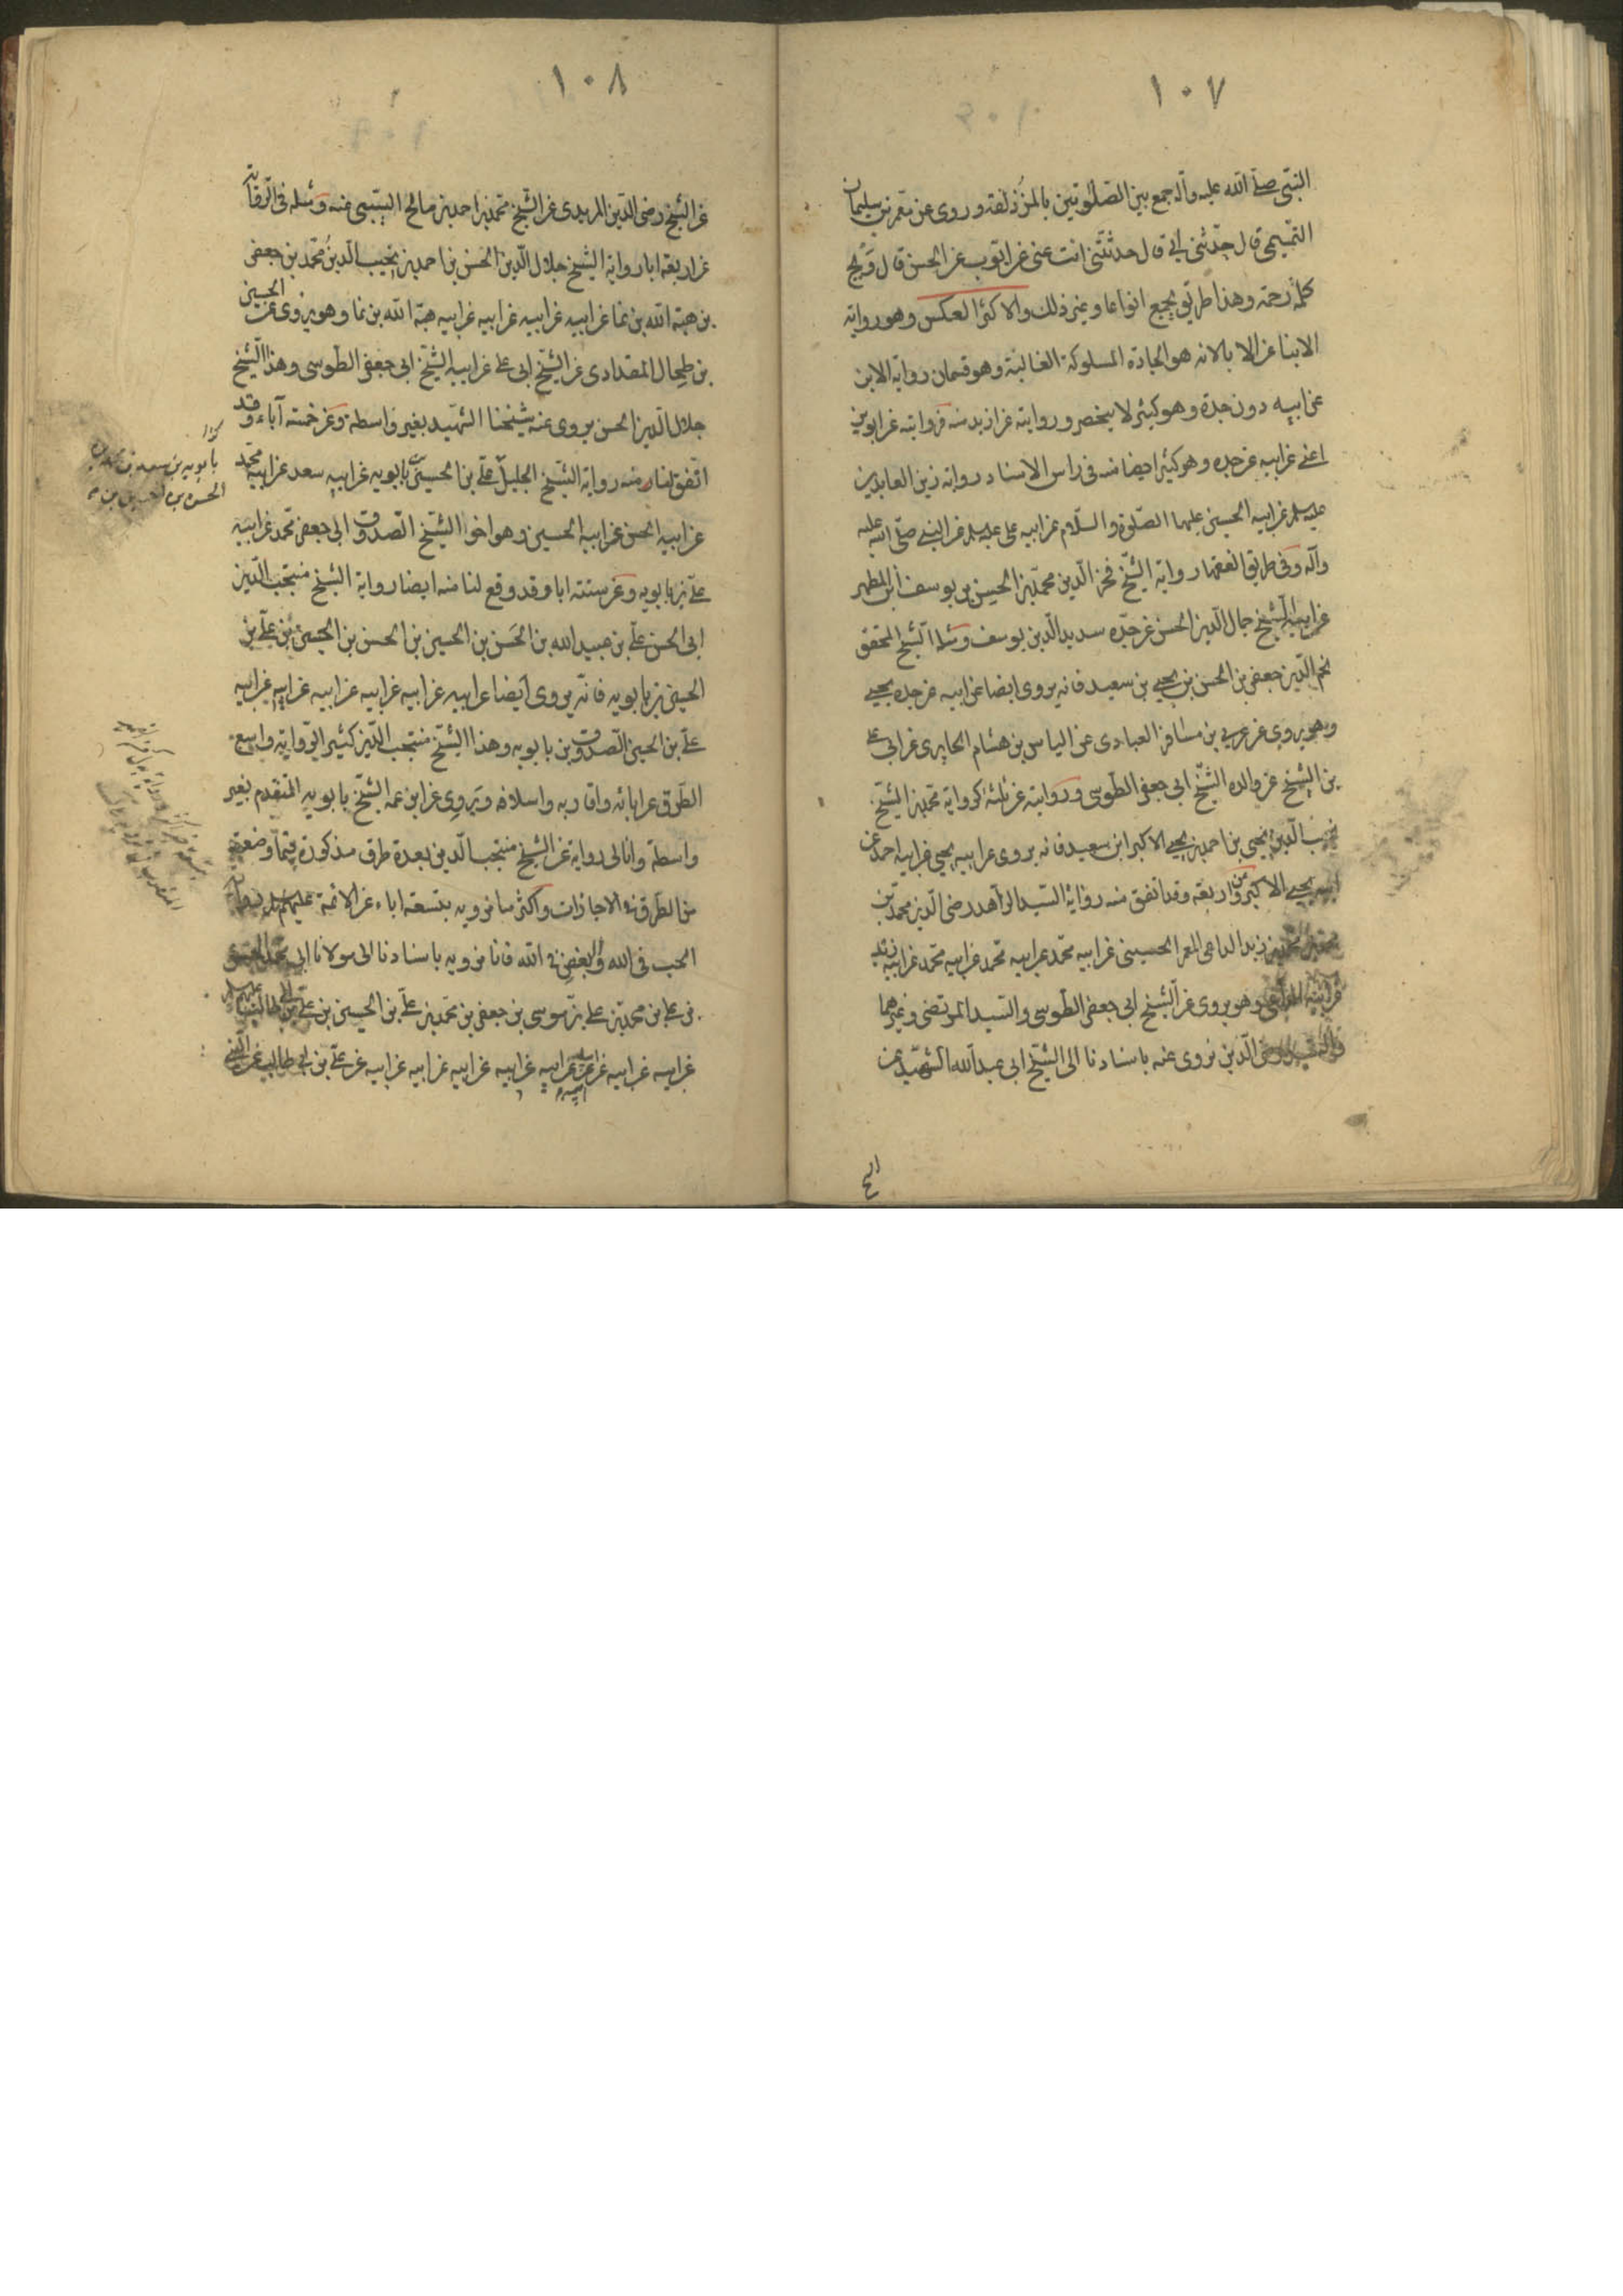 ١٠٧
النبي صلى الله عليه وآله جمع بين الصلوتين بالمزذلفة وروى عن معمر بن سليمان
التميمي قال حدثني ابي قال حدثتني انت عني عن ايوب عن الحسن قال ويح
كلمة رحمة وهذا طريق يجمع انواعا وغير ذلك والاكثر العكس وهو رواية
الابنا عن الابا لانه هو الجادة المسلوكة الغالبة وهو قسمان رواية الابن
عن ابيه دون جده وهو كثير لا ينحصر وروايته عن ازيد منه فروايته عن ابوين
اعنى عن ابيه عن جده وهو كثير ايضا منه في راس الاسناد رواية زين العابدين
عليه السلم عن ابيه الحسين عليهما الصلوة والسلام عن ابيه على عليه السلم عن النبي صلى الله عليه
وآله وفي طريق الفقها رواية الشيخ فخر الدين محمد بن الحسن بن يوسف ابن المطهر
عن ابيه الشيخ جمال الدين الحسن عن جده سديد الدين يوسف ومثله الشيخ المحقق
نجم الدين جعفر بن الحسن بن يحيى بن سعيد فانه يروى ايضا عن ابيه عن جده يحيى
وهو يروى عن عربي بن مسافر العبادى عن الياس بن هشام الحايرى عن ابي على
بن الشيخ عن والده الشيخ ابي جعفر الطوسى وروايته عن ثلثة كرواية محمد بن الشيخ
نجيب الدين يحيى بن احمد بن يحيى الاكبر ابن سعيد فانه يروى عن ابيه يحيى عن ابيه احمد عن
ابيه يحيى الاكبر وعن اربعة وقد اتفق منه رواية السيد الزاهد رضى الدين محمد بن
محمد بن محمد بن زيد الداعى المعمر الحسينى عن ابيه محمد عن ابيه محمد عن ابيه محمد عن ابيه زيد
عن ابيه الداعى وهو يروى عن الشيخ ابي جعفر الطوسى والسيد المرتضى وغيرهما
رضى الدين نروى عنه باسنادنا الى الشيخ ابي عبد الله الشهيد عن
الشيخ
١٠٨
عن الشيخ رضى الدين المزيدى عن الشيخ محمد بن احمد بن صالح السيبى عنه ومثله في الرواية
عن اربعة ابا رواية الشيخ جلال الدين الحسن بن احمد بن نجيب الدين محمد بن جعفر
بن هبة الله بن نما عن ابيه عن ابيه عن ابيه عن ابيه هبة الله بن نما وهو يروى عن الحسين
بن طحال المقدادى عن الشيخ ابى على عن ابيه الشيخ ابى جعفر الطوسى وهذا الشيخ
جلال الدين الحسن يروى عنه شيخنا الشهيد بغير واسطة وعن خمسة آباء وقد
اتفق لنا منه رواية الشيخ الجليل بابويه عن ابيه سعد عن ابيه محمد
عن ابيه الحسن عن ابيه الحسين وهو اخو الشيخ الصدوق ابى جعفر محمد عن ابيه
على بن بابويه وعن ستة ابا وقد وقع لنا منه ايضا رواية الشيخ منتجب الدين
ابى الحسن على بن عبيد الله بن الحسن بن الحسين بن الحسن بن الحسين بن على بن
الحسين بن بابويه فانه يروى ايضا عن ابيه عن ابيه عن ابيه عن ابيه عن ابيه عن ابيه
على بن الحسين الصدوق بن بابويه وهذا الشيخ منتجب الدين كثير الرواية واسع
الطرق عن ابائه واقاربه واسلافه ويروى عن ابن عمه الشيخ بابويه المتقدم بغير
واسطة وانا لى رواية عن الشيخ منتجب الدين بعدة طرق مذكورة فيما وضعته
من الطرق في الاجازات واكثر ما نرويه بتسعة اباء عن الائمة عليهم السلم رواية
الحب في الله والبغض في الله فانا نرويه باسنادنا الى مولانا ابى محمد الحسن
بن على بن محمد بن على بن موسى بن جعفر بن محمد بن على بن الحسين بن على بن ابى طالب عليهم السلم
عن ابيه عن ابيه عن ابيه عن ابيه عن ابيه عن ابيه عن ابيه عن ابيه عن على بن ابى طالب عن النبى
بابويه بن سعد بن محمد بن
الحسن بن الحسين بن